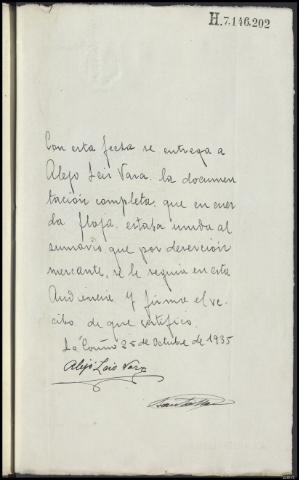 H.7.146.202
Con esta fecha se entrega a
Alejo Leis Vara, la documen
tación completa, que en cuer
da floja estaba unida al
sumario que por deserción
mercante, se le seguia en esta
Y firma el re-
cibo de que certifico.
La Coruña 25 de Octubre de 1935
Alejo Leis Vara